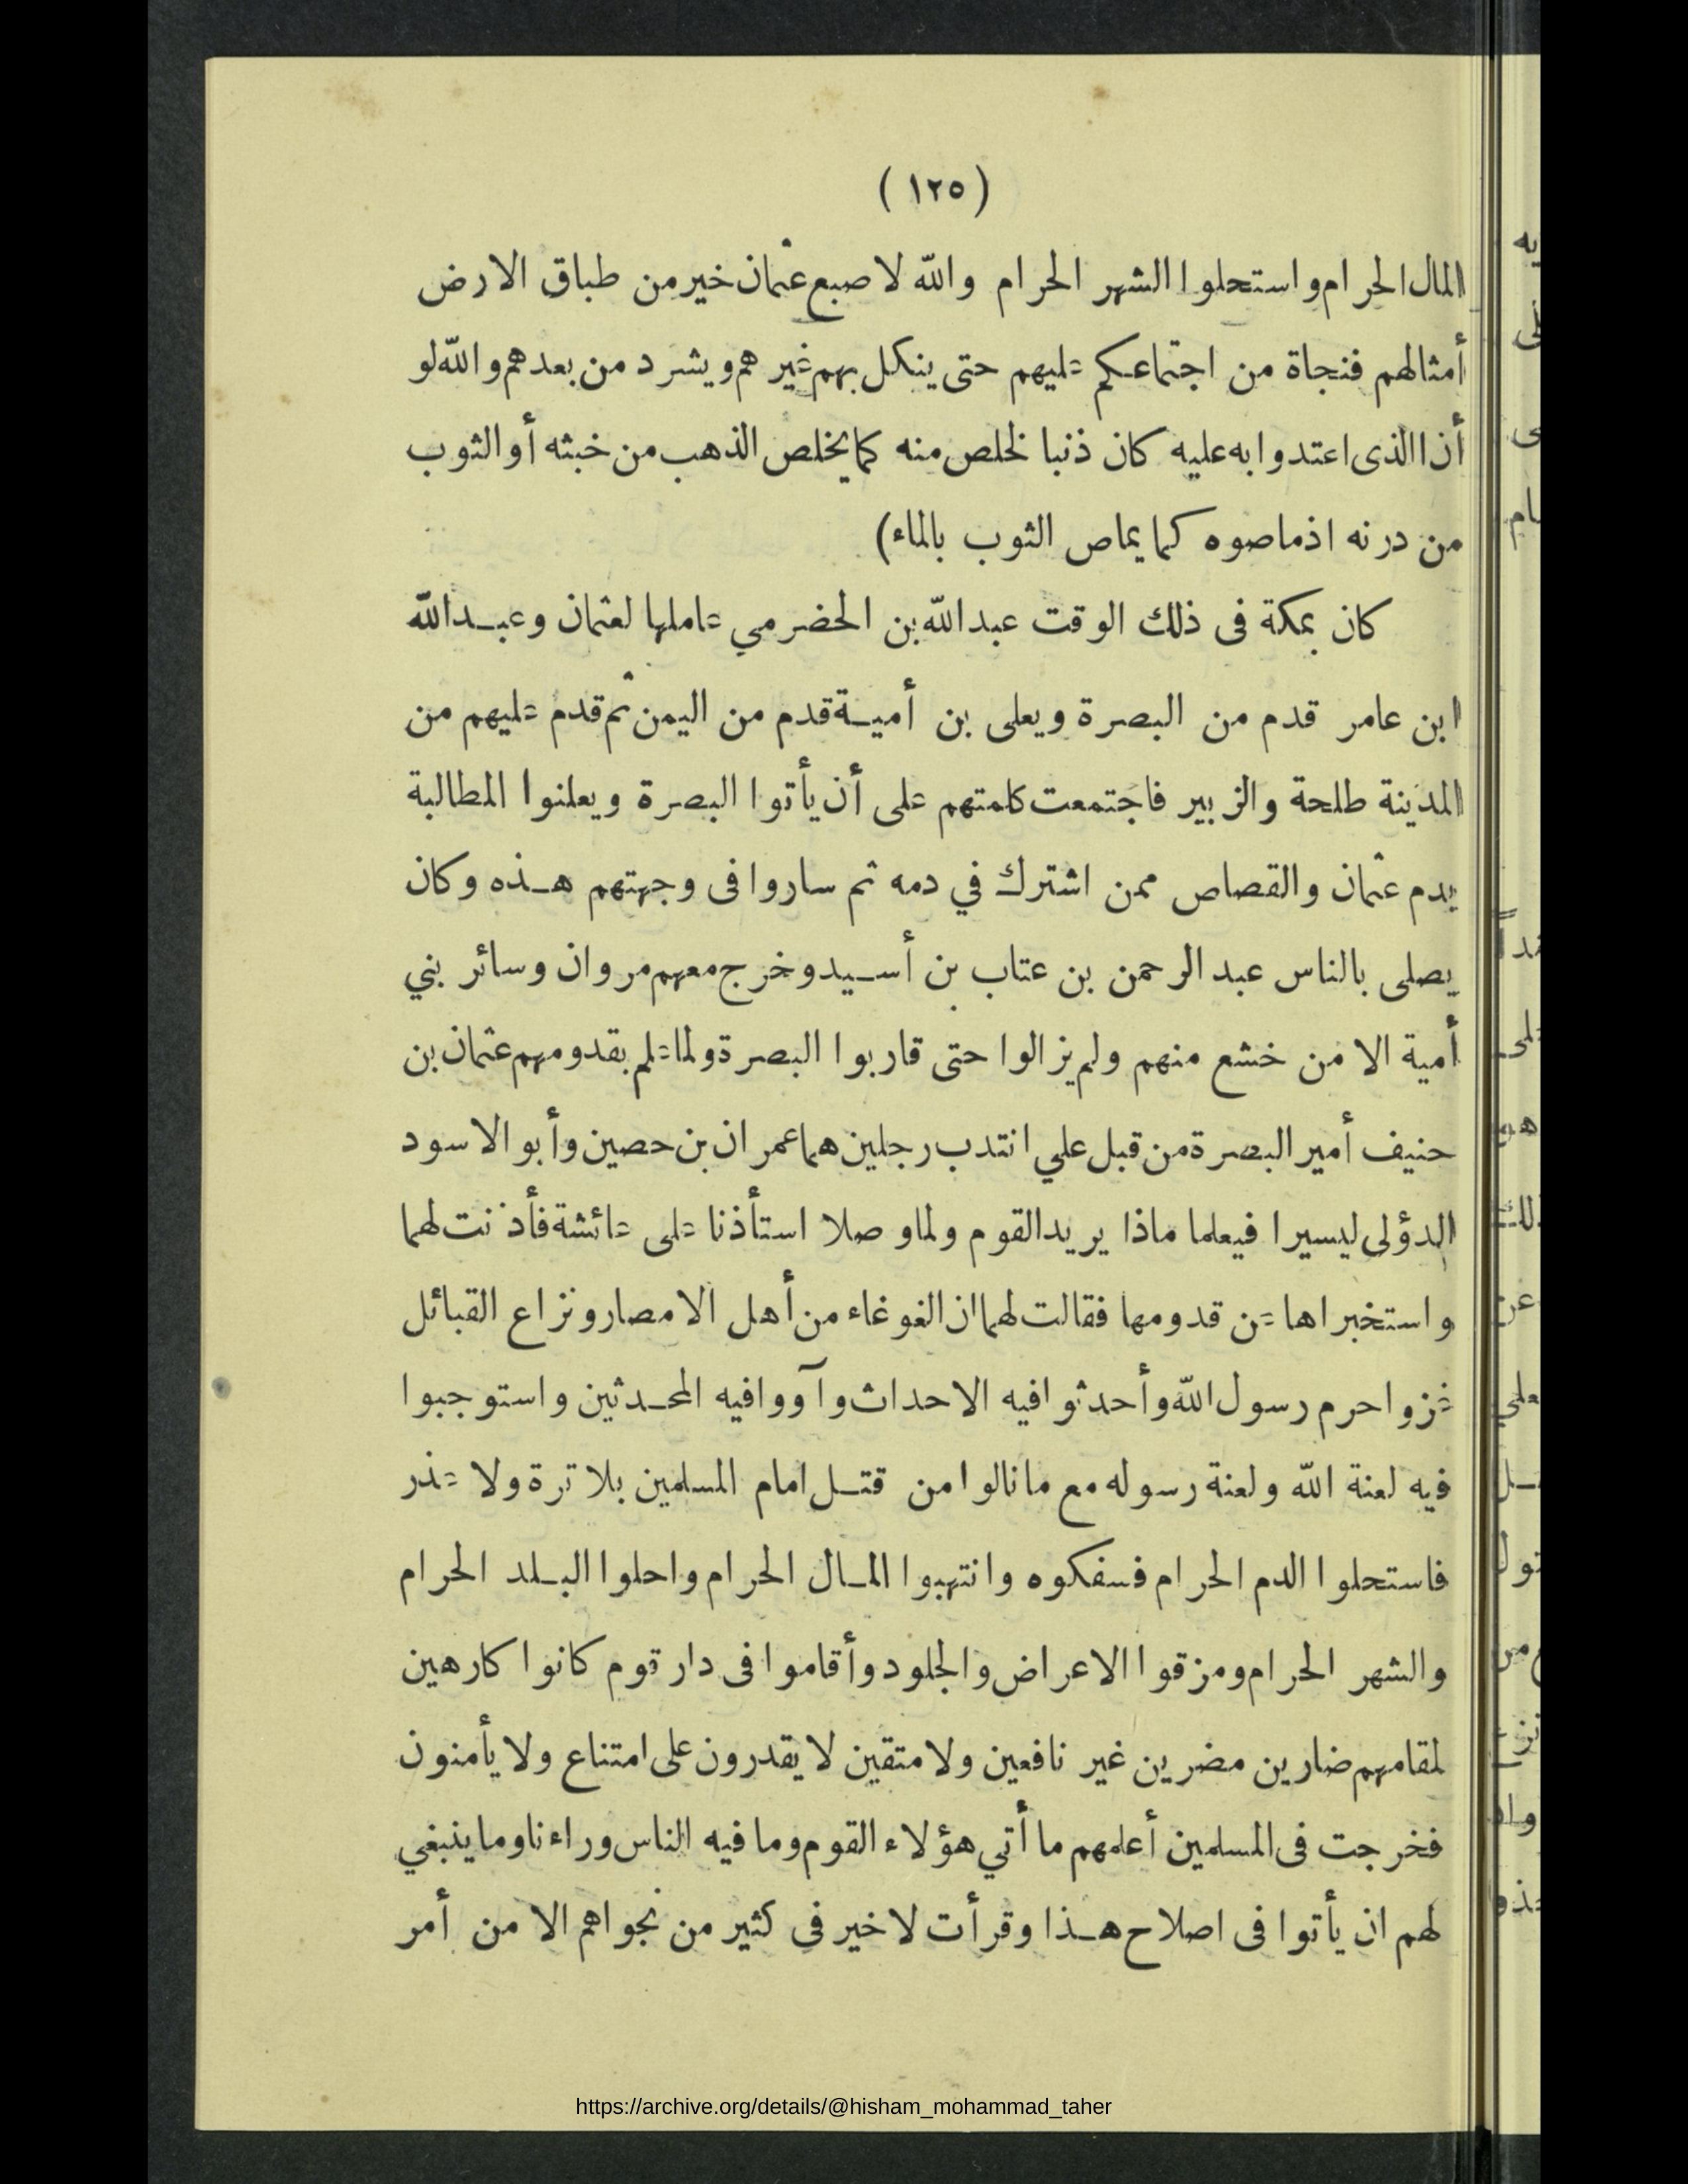 (١٢٥)
المال الحرام واستحلوا الشهر الحرام والله لاصبع عثمان خير من طباق الارض
أمثالهم فنجاة من اجتماعكم عليهم حتى ينكل بهم غيرهم ويشرد من بعدهم والله لو
أن الذى اعتدوا به عليه كان ذنبا لخلص منه كما يخلص الذهب من خبثه أو الثوب
من درنه اذ ماصوه كما يماص الثوب بالماء)
كان بمكة فى ذلك الوقت عبد الله بن الحضرمي عاملها لعثمان وعبد الله
ابن عامر قدم من البصرة ويعلى بن أمية قدم من اليمن ثم قدم عليهم من
المدينة طلحة والزبير فاجتمعت كلمتهم على أن يأتوا البصرة ويعلنوا المطالبة
بدم عثمان والقصاص ممن اشترك في دمه ثم ساروا فى وجهتهم هذه وكان
يصلى بالناس عبد الرحمن بن عتاب بن أسيد وخرج معهم مروان وسائر بني
أمية الا من خشع منهم ولم يزالوا حتى قاربوا البصرة ولما علم بقدومهم عثمان بن
حنيف أمير البصرة من قبل علي انتدب رجلين هما عمران بن حصين وأبو الاسود
الدؤلى ليسيرا فيعلما ماذا يريد القوم ولما وصلا استأذنا على عائشة فأذنت لهما
واستخبراها عن قدومها فقالت لهما ان الغوغاء من أهل الامصار ونزاع القبائل
غزوا حرم رسول الله وأحدثوا فيه الاحداث وآووا فيه المحدثين واستوجبوا
فيه لعنة الله ولعنة رسوله مع ما نالوا من قتل امام المسلمين بلا ترة ولا عذر
فاستحلوا الدم الحرام فسفكوه وانتهبوا المال الحرام واحلوا البلد الحرام
والشهر الحرام ومزقوا الاعراض والجلود وأقاموا فى دار قوم كانوا كارهين
لمقامهم ضارين مضرين غير نافعين ولا متقين لا يقدرون على امتناع ولا يأمنون
فخرجت فى المسلمين أعلمهم ما أتي هؤلاء القوم وما فيه الناس وراءنا وما ينبغي
لهم ان يأتوا فى اصلاح هذا وقرأت لا خير فى كثير من نجواهم الا من أمر
https://archive.org/details/@hisham_mohammad_taher